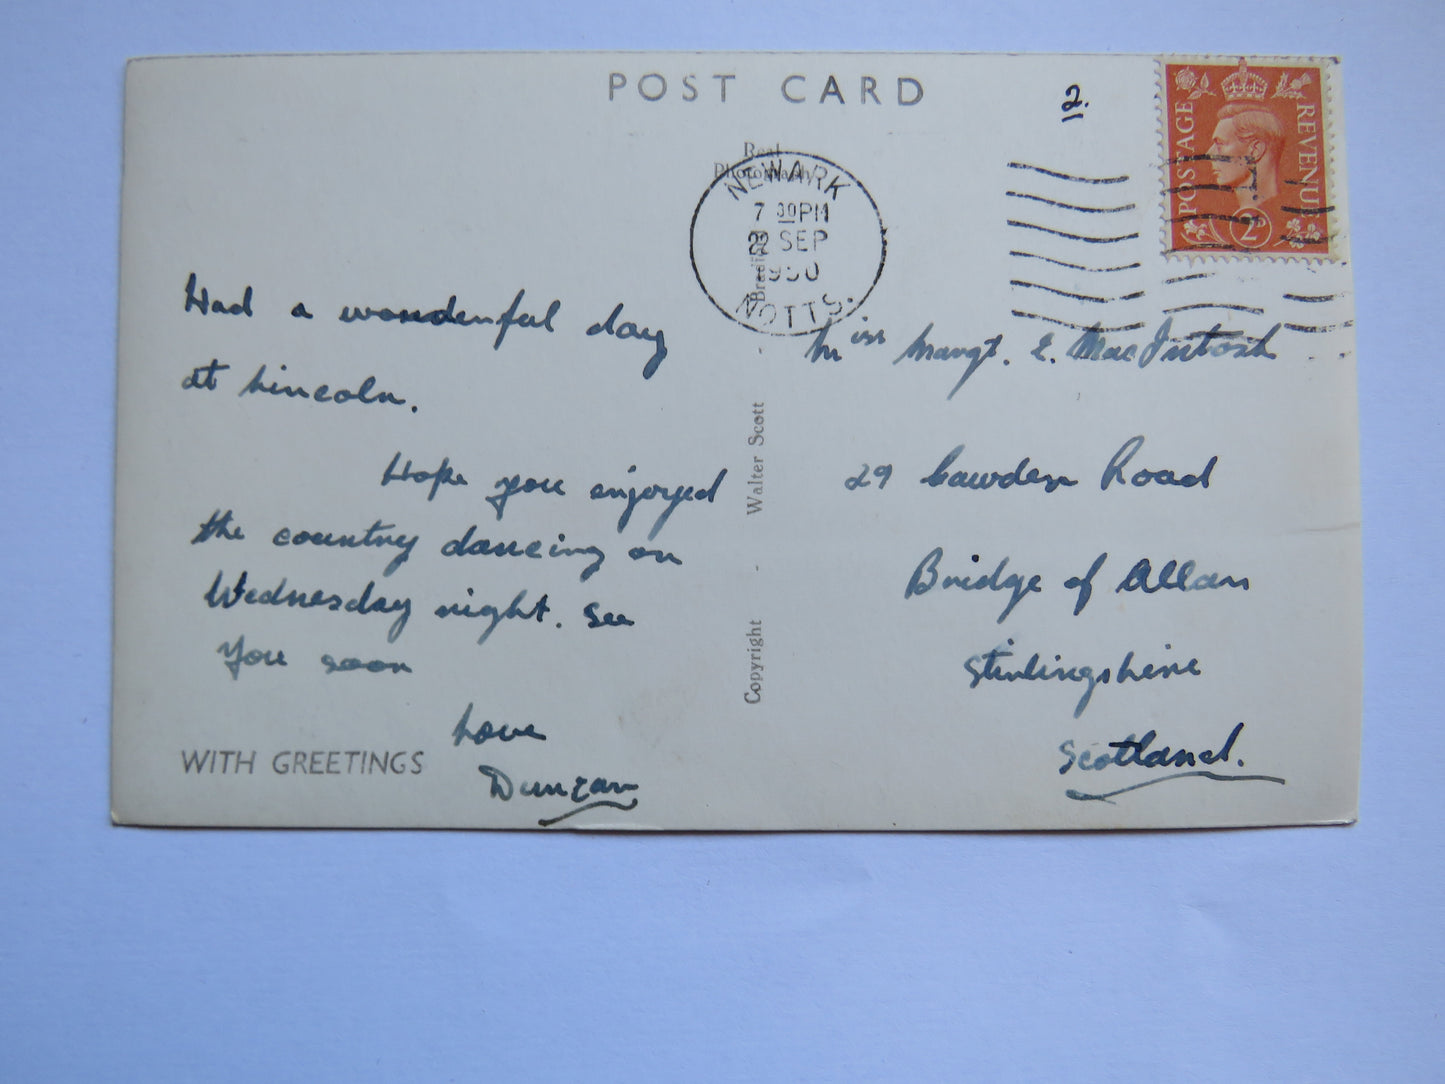 POST CARD
2.
POSTAGE
REVENUE
2D
Real
Photograph
NEWARK
7 30PM
SEP
1950
NOTTS.
Had a wonderful day
at Lincoln.
Hope you enjoyed
the country dancing on
Wednesday night. See
you soon
Love
Duncan
WITH GREETINGS
Copyright
Walter Scott
Bradford
Miss Margt. E. MacIntosh
29 Cawder Road
Bridge of Allan
Stirlingshire
Scotland.